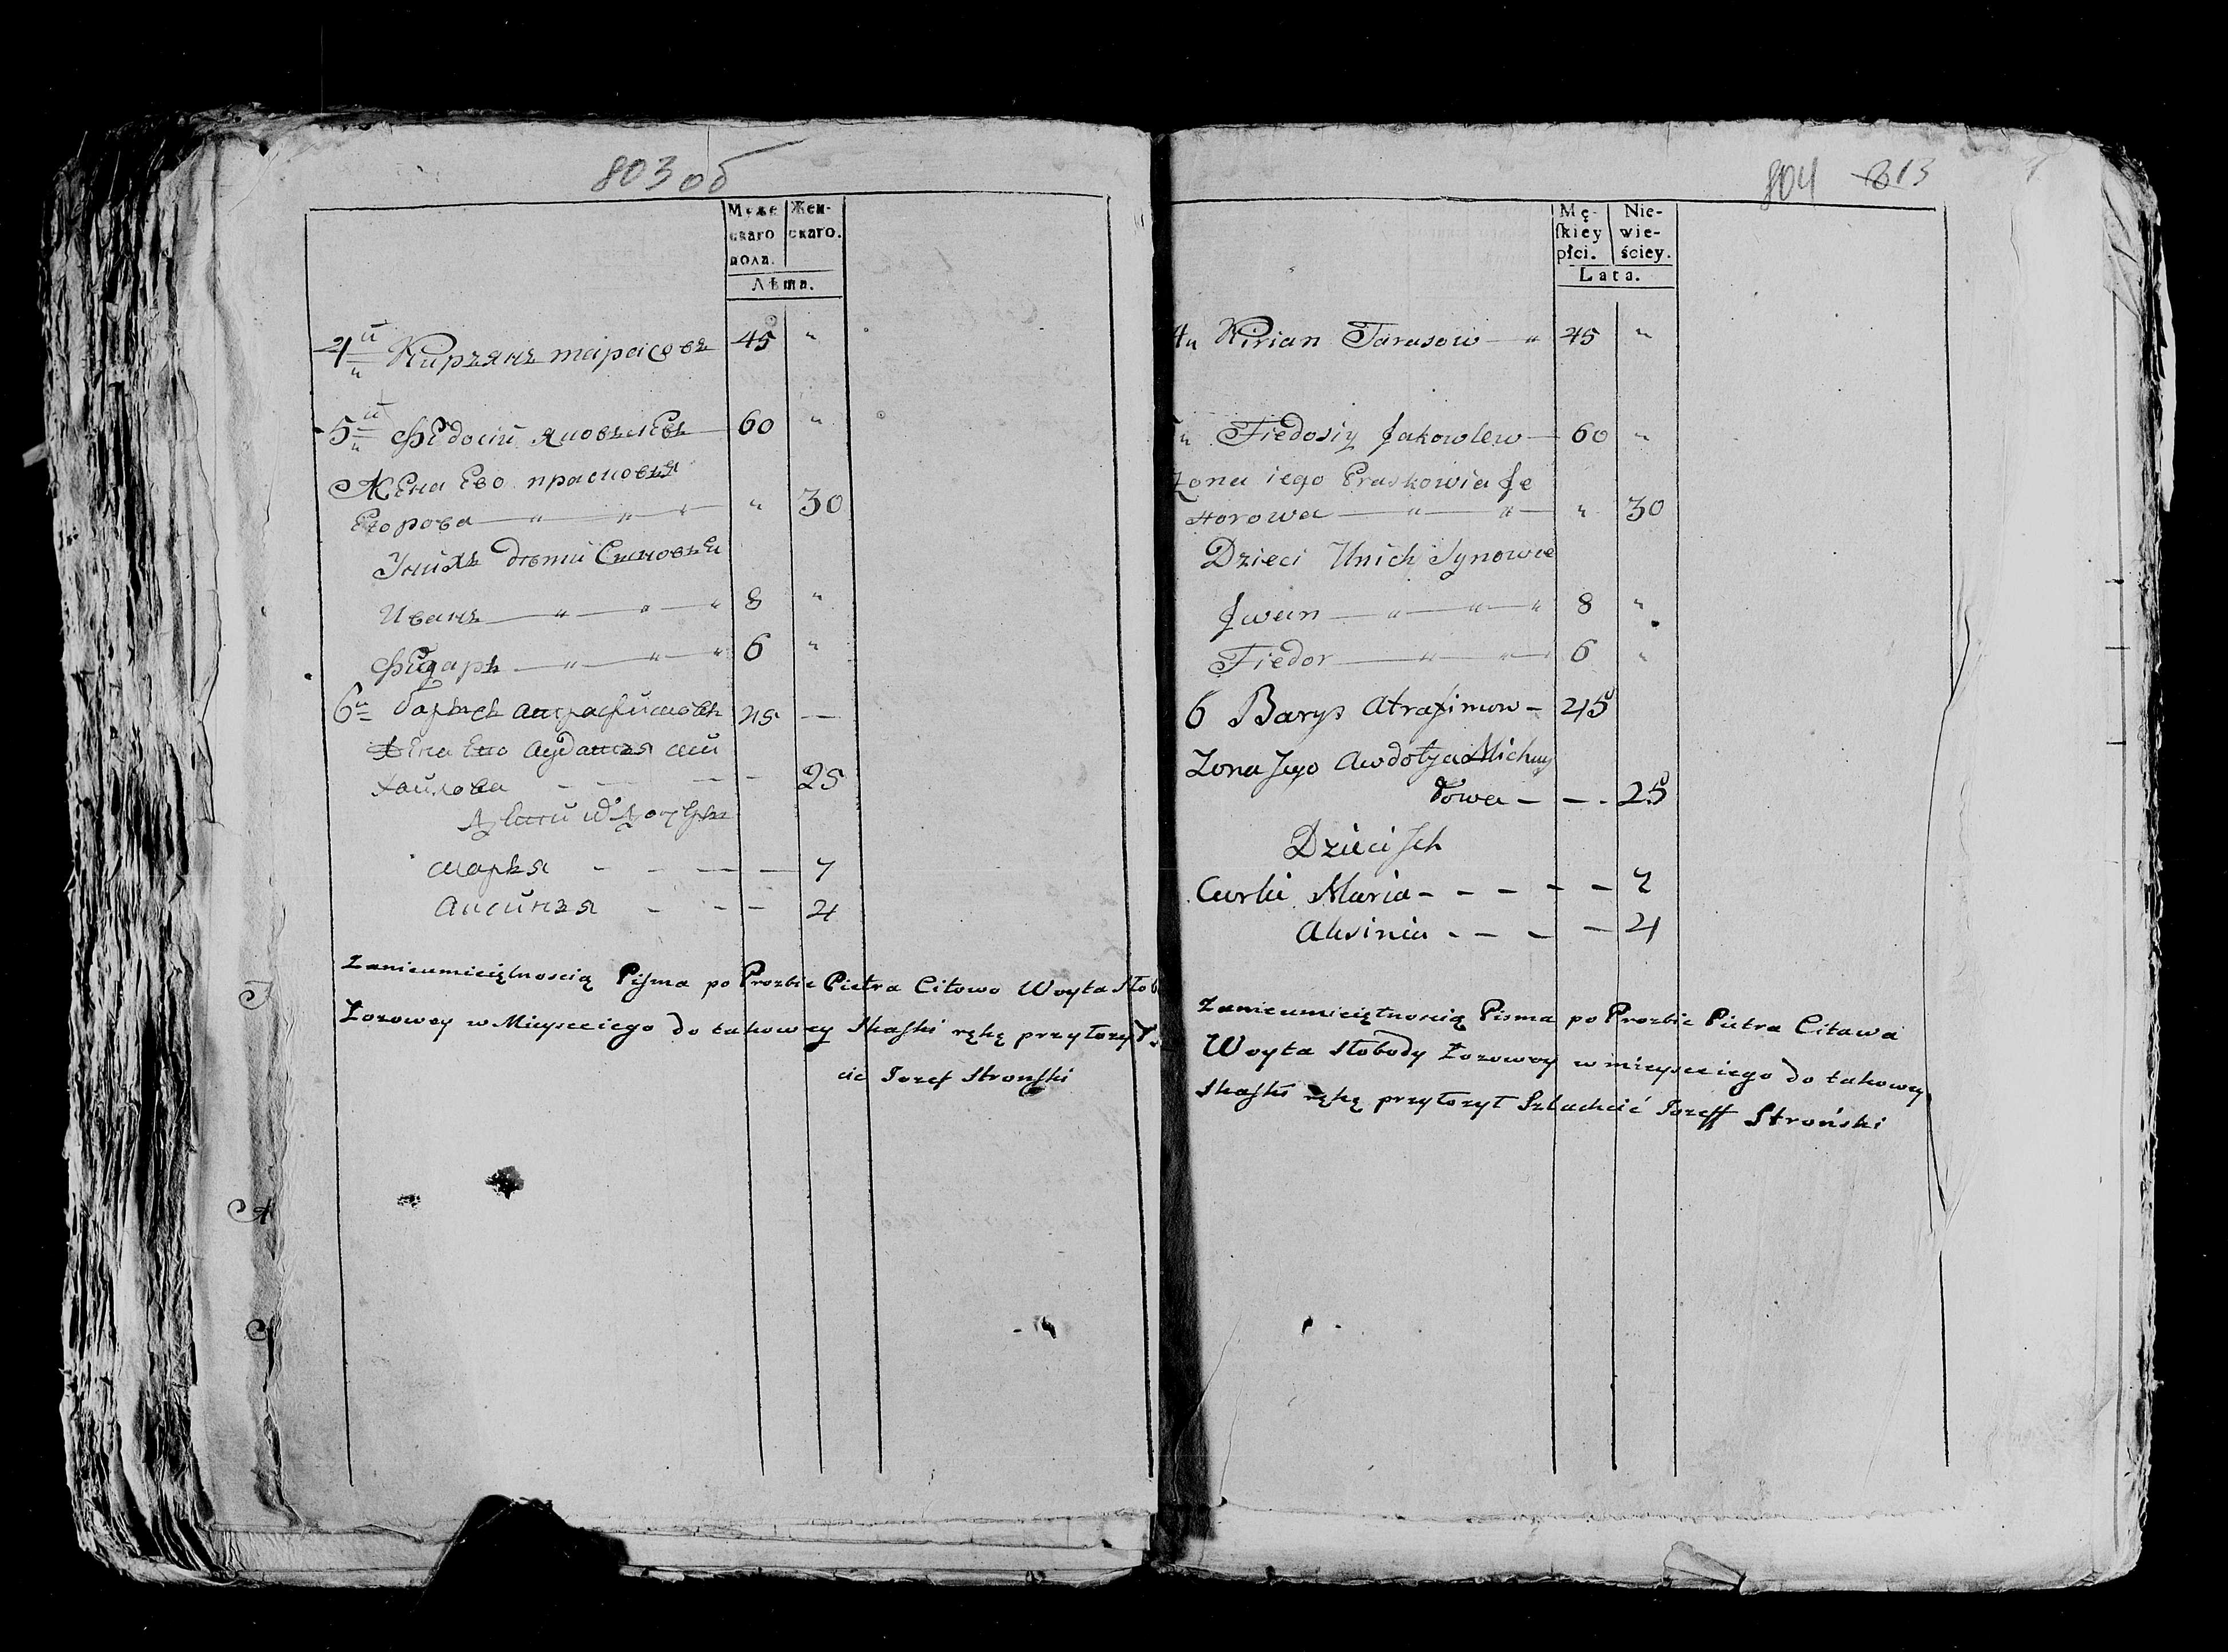 803 об
Муже
скаго
пола.
Жен-
скаго.
Лѣта.
4й Киръянъ тарасовъ 45 "
5й Фѣдосій яковълевъ 60 "
Жена Ево прасковья
Егорова " 30
Унихъ дѣти Сыновья
Иванъ 8 "
Фѣдаръ 6 "
6й Барысъ Атрафимовъ 45 —
Жена Ево Авдотъя ми
хайлова 25
маръя 7
Аксинъя 4
Zanieumieiętnoscią Pisma po Prozbie Pietra Citowo Woyta Słob
Łozowey w Mieysceiego do takowey Skaski rękę przyłozył S.
cic Iozef Stronski
804 813
Mę-
skiey
płci.
Nie-
wie-
ściey.
Lata.
4 Kirian Tarasow 45 "
5 Fiedosiy Jakowlew 60 "
Zona iego Praskowia Je
horowa " 30
Dzieci Unich Synowie
Jwan 8 "
Fiedor 6 "
6 Barys Atrafimow 45
Zona Jego Awdotya Michay
łowa 25
Dzieci Jch
Curki Maria 7
Aksinia 4
Zanieumieiętnoscią Pisma po Prozbie Pietra Citawa
Woyta Słobody Łozowey w mieysceiego do takowey
Skaski rękę przyłozył Szlachcić Iozeff Stroński